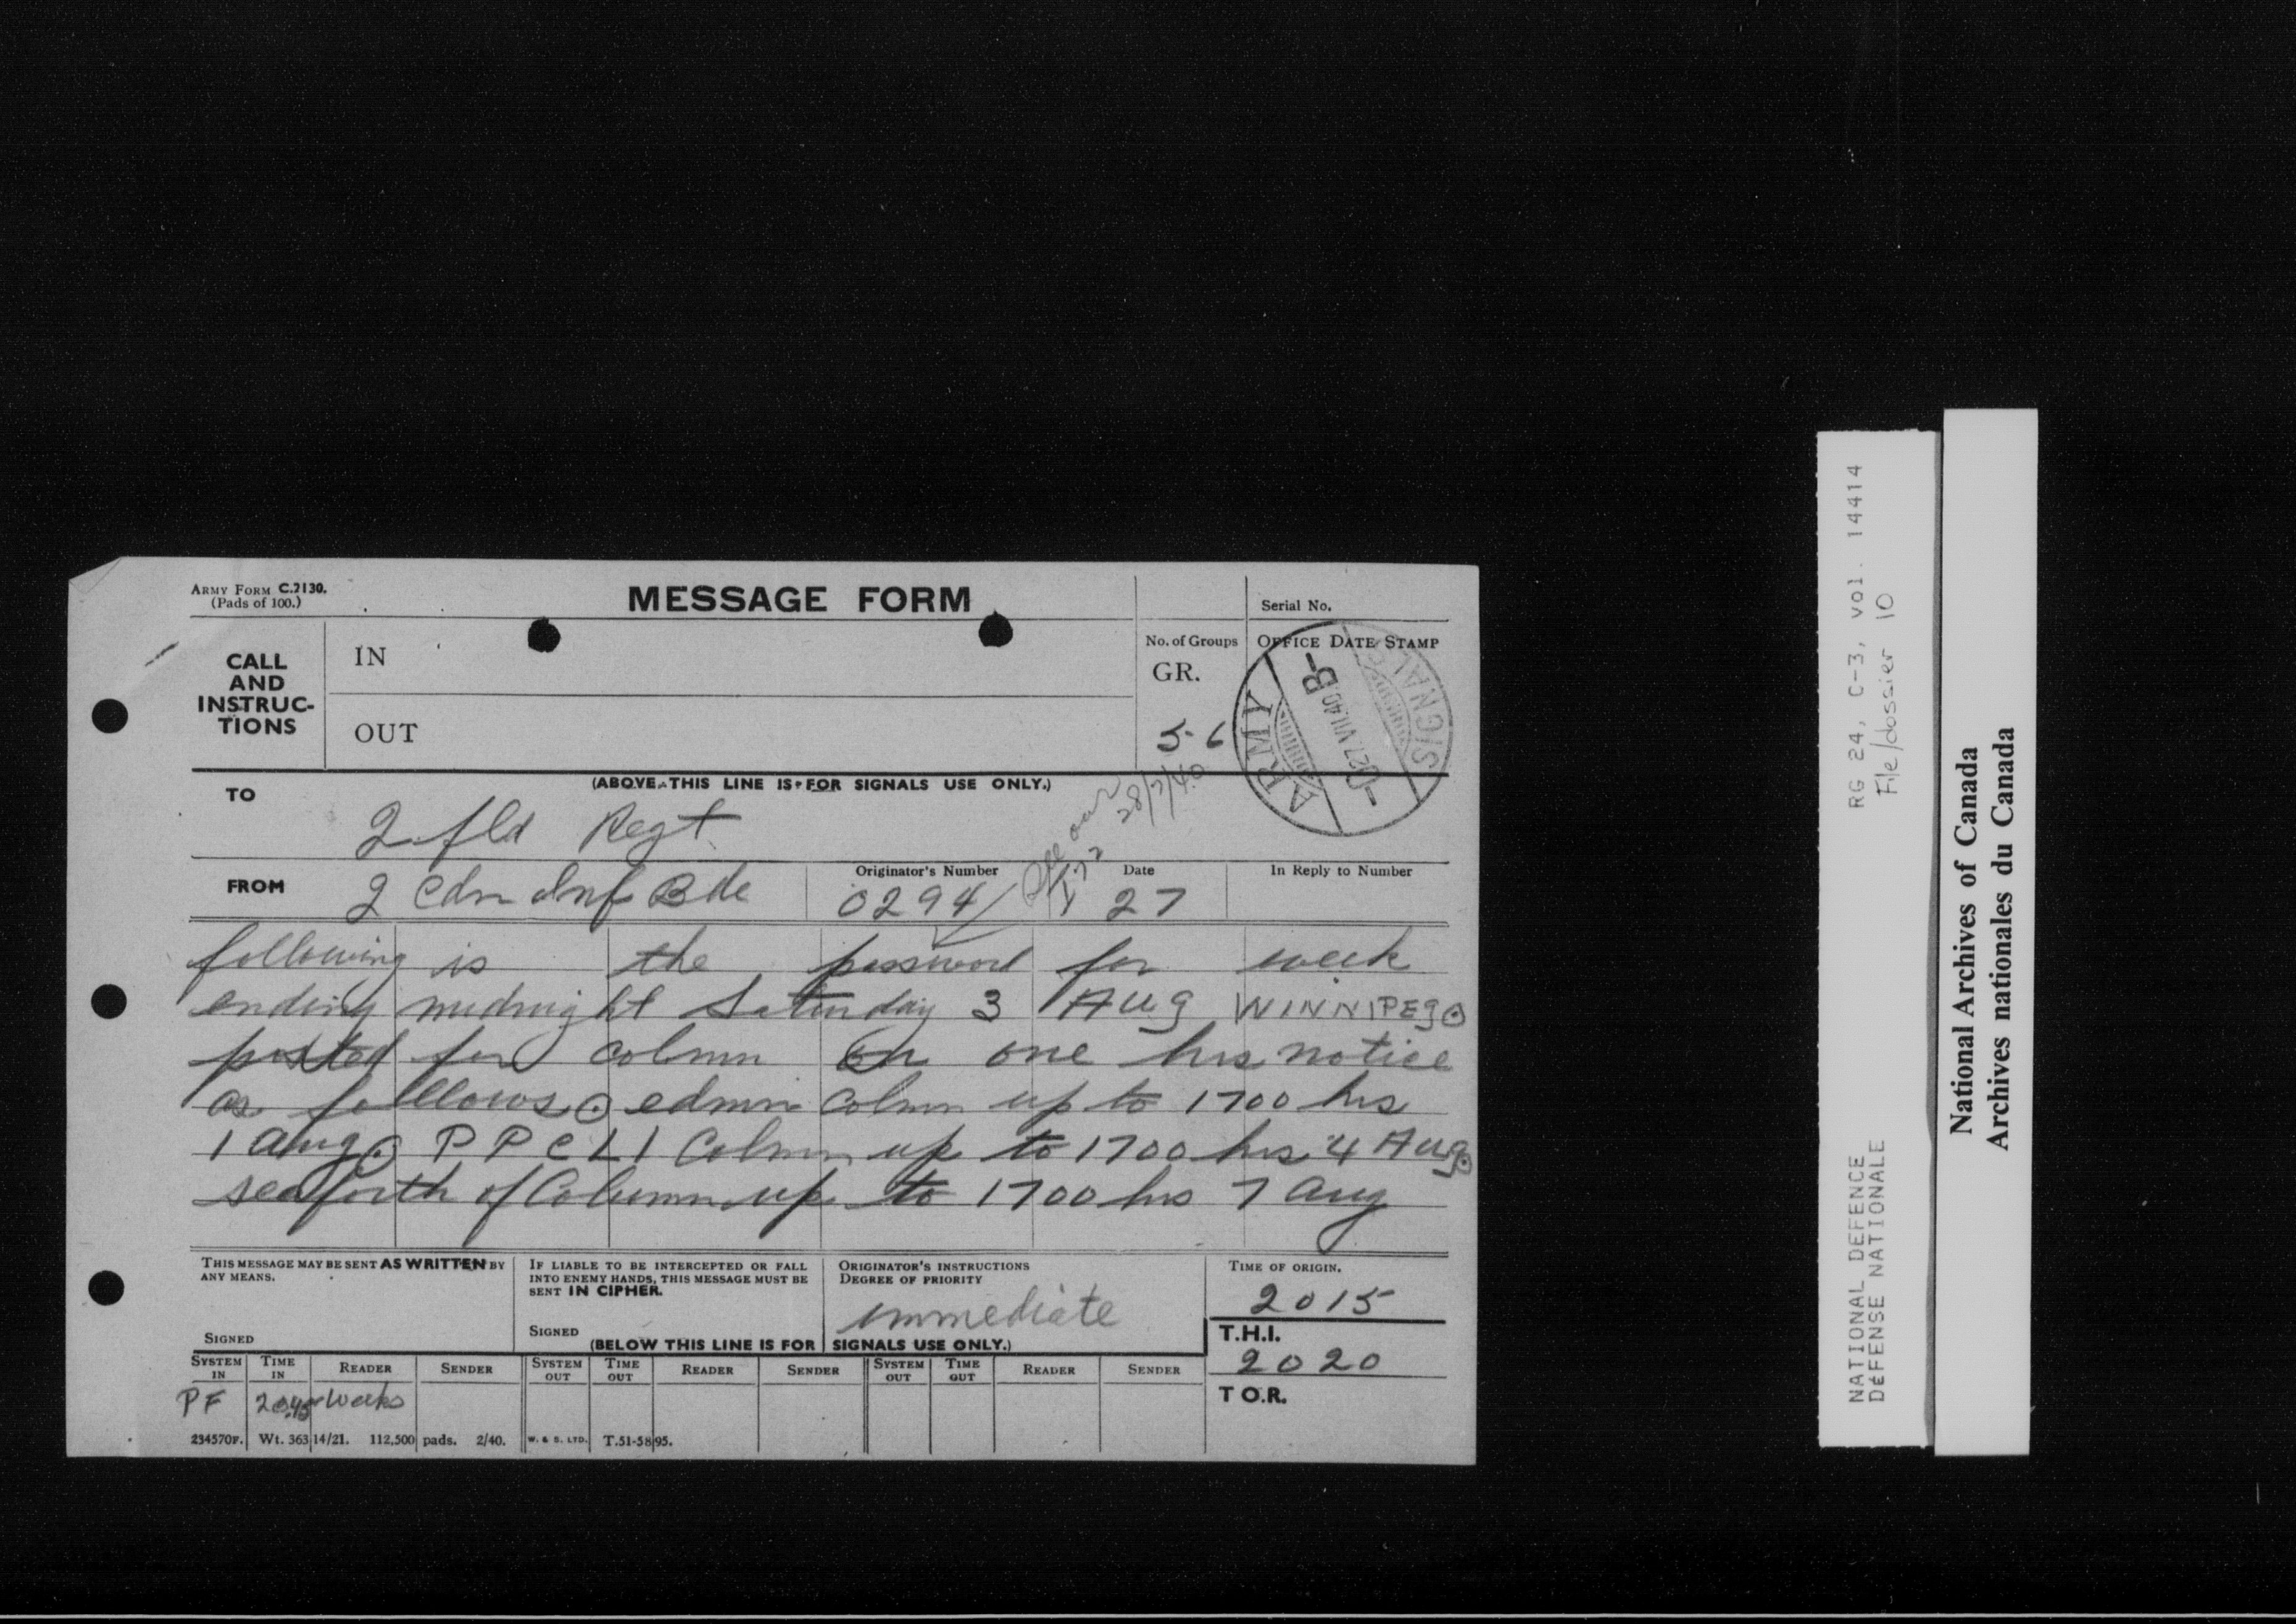 ARMY FORM C.2130.
(Pads of 100.)
MESSAGE FORM
Serial No.
CALL AND INSTRUC-TIONS
IN
OUT
No. of Groups
GR.
56
OFFICE DATE STAMP
ARMY SIGNALS
27.VII.40
B-
(ABOVE THIS LINE IS FOR SIGNALS USE ONLY.)
TO
2 fld Regt
See our
I.72
28/7/40
FROM
2 Cdn Inf Bde
Originator's Number
0294
Date
27
In Reply to Number
following is the password for week
ending midnight Saturday 3 Aug WINNIPEG
posted for column on one hrs notice
as follows edmn colmn up to 1700 hrs
1 aug P P C L I Colmn up to 1700 hrs 4 Aug
seaforth of Column up to 1700 hrs 7 Aug
THIS MESSAGE MAY BE SENT AS WRITTEN BY ANY MEANS.
SIGNED
IF LIABLE TO BE INTERCEPTED OR FALL INTO ENEMY HANDS, THIS MESSAGE MUST BE SENT IN CIPHER.
SIGNED
ORIGINATOR'S INSTRUCTIONS
DEGREE OF PRIORITY
immediate
TIME OF ORIGIN.
2015
T.H.I.
2020
T O.R.
(BELOW THIS LINE IS FOR SIGNALS USE ONLY.)
SYSTEM IN TIME IN READER SENDER SYSTEM OUT TIME OUT READER SENDER SYSTEM OUT TIME OUT READER SENDER
PF 2045 Weeks
234570F. Wt. 36314/21. 112,500 pads. 2/40. W. & S. LTD. T.51-5895.
RG 24, C-3, vol. 14414
File/dossier 10
NATIONAL DEFENCE
DÉFENSE NATIONALE
National Archives of Canada
Archives nationales du Canada